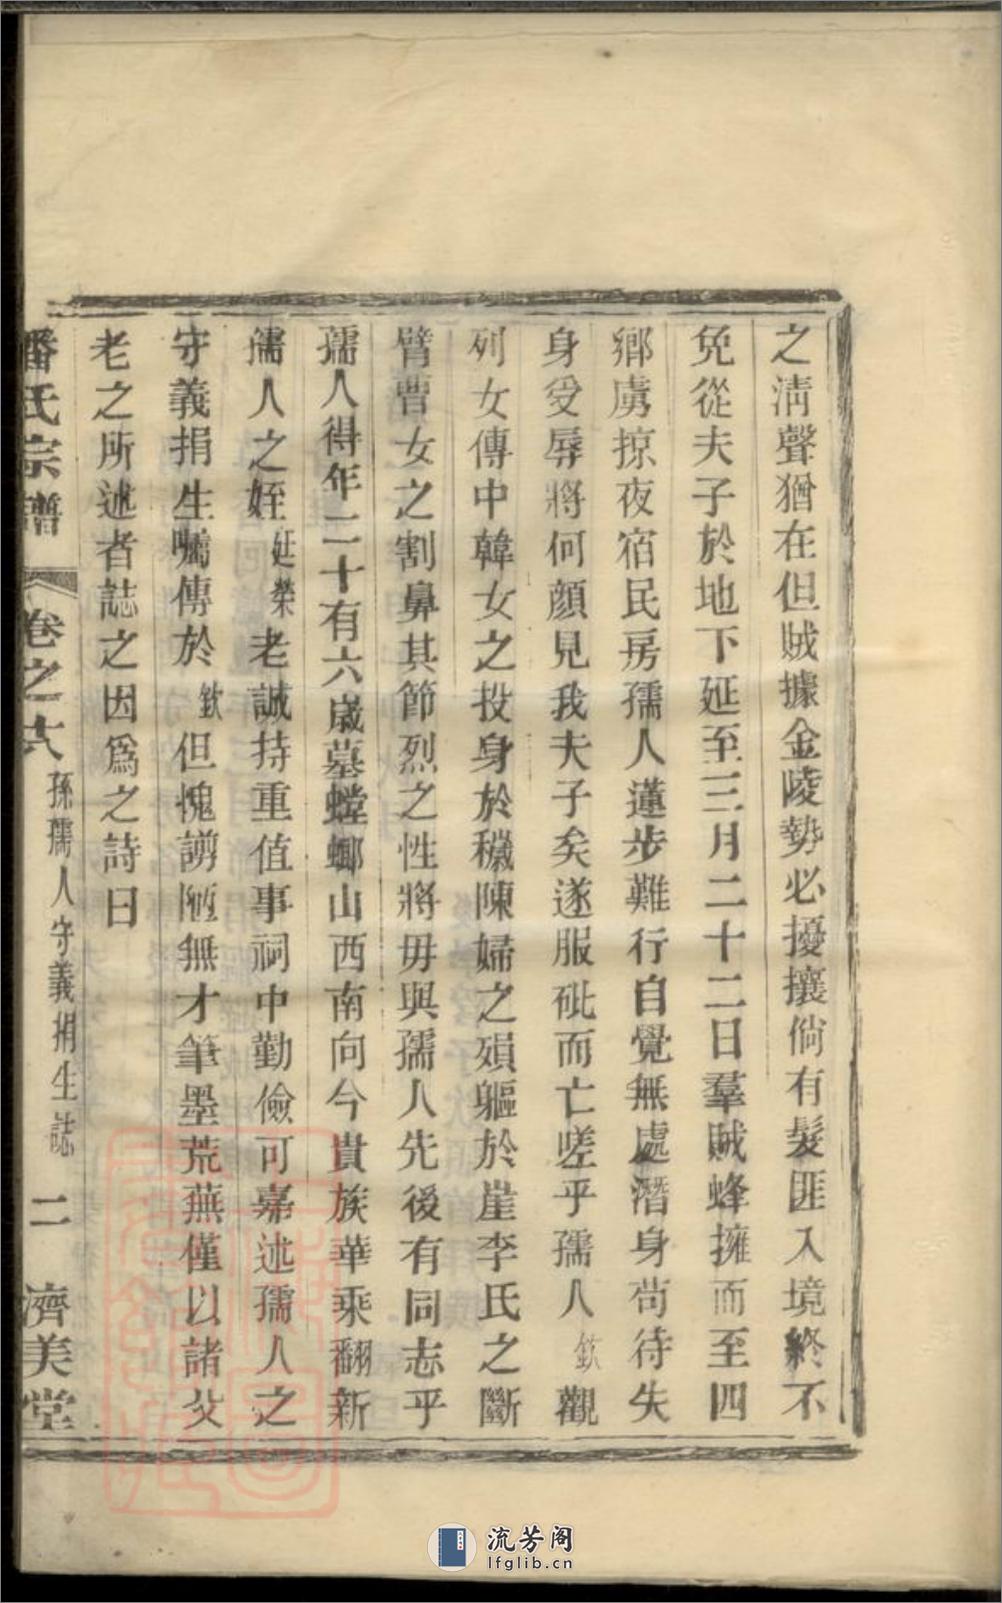 之淸聲猶在但賊據金陵勢必擾攘倘有髮匪入境終不
免從夫子於地下延至三月二十二日羣賊蜂擁而至四
鄉虜掠夜宿民房孺人蓮步難行自覺無處潛身苟待失
身受辱將何顏見我夫子矣遂服砒而亡嗟乎孺人欽觀
列女傳中韓女之投身於穢陳婦之殞軀於崖李氏之斷
臂曹女之割鼻其節烈之性將毋與孺人先後有同志乎
孺人得年二十有六歲墓螳螂山西南向今貴族華乘翻新
孺人之姪延榮老誠持重值事祠中勤儉可嘉述孺人之
守義捐生囑傳於欽但愧謭陋無才筆墨荒蕪僅以諸父
老之所述者誌之因爲之詩曰
潘氏宗譜 卷之六 孫孺人守義捐生誌 二 濟美堂
流芳阁
lfglib.cn